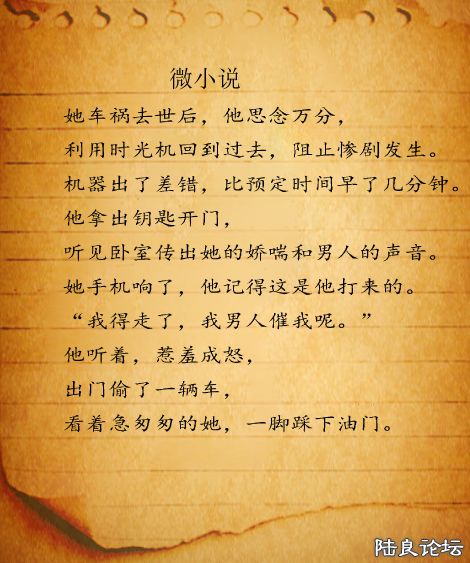 微小说
她车祸去世后，他思念万分，
利用时光机回到过去，阻止惨剧发生。
机器出了差错，比预定时间早了几分钟。
他拿出钥匙开门，
听见卧室传出她的娇喘和男人的声音。
她手机响了，他记得这是他打来的。
“我得走了，我男人催我呢。”
他听着，惹羞成怒，
出门偷了一辆车，
看着急匆匆的她，一脚踩下油门。
陆良论坛